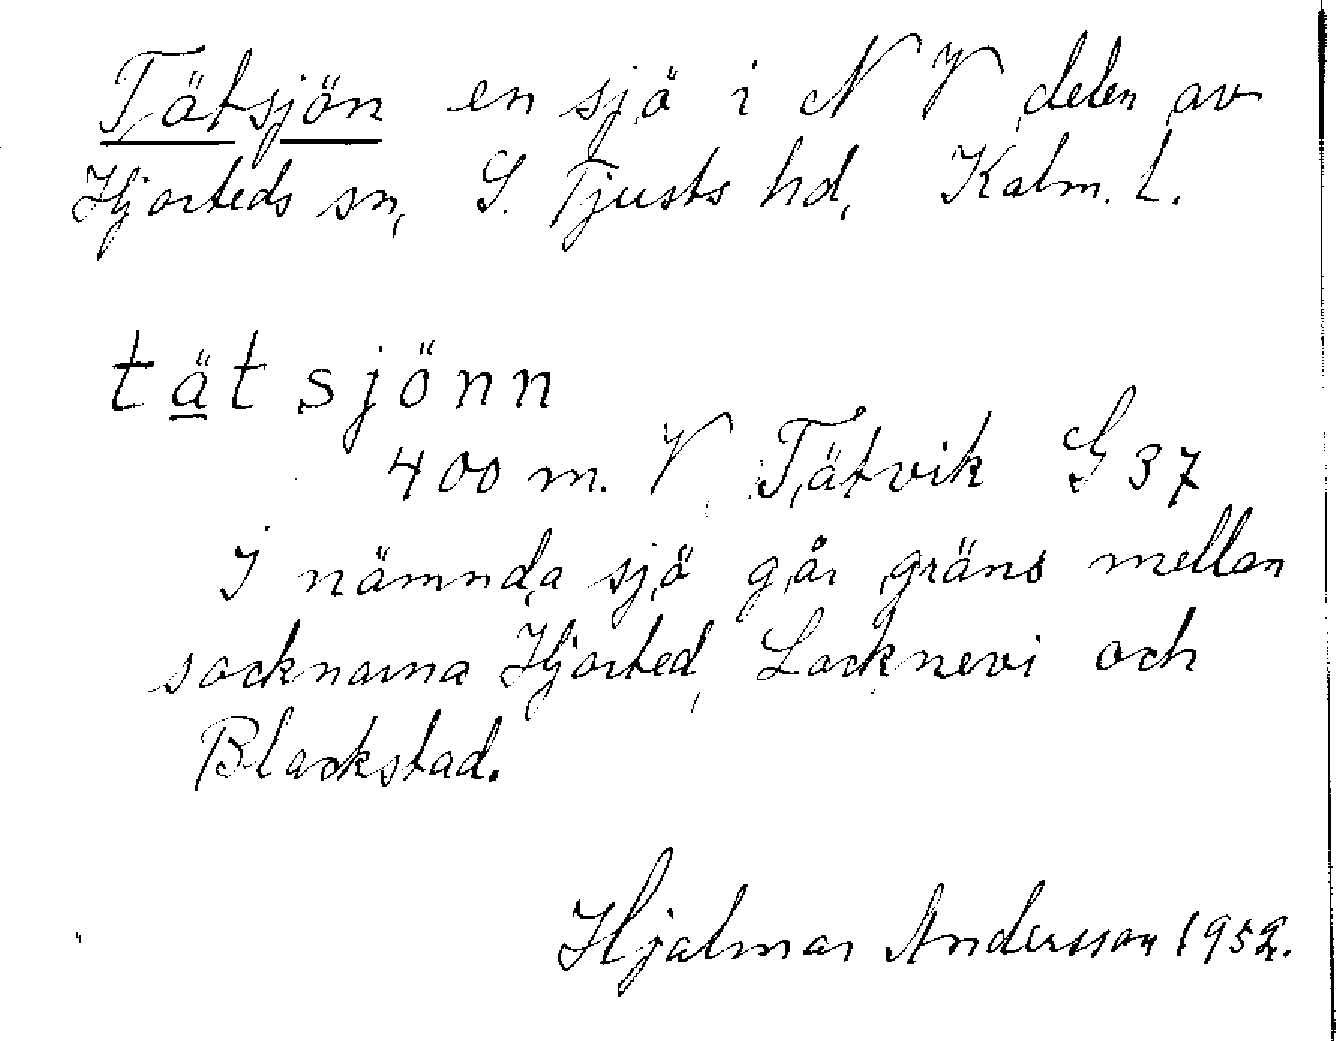 Tätsjön en sjö i N V delen av
Hjorteds sn, S. Tjusts hd, Kalm. L.
tät sjönn
400 m. V Tätvik G 37
I nämnda sjö går gräns mellan
socknarna Hjorted, Locknevi och
Blackstad.
Hjalmar Andersson 1952.